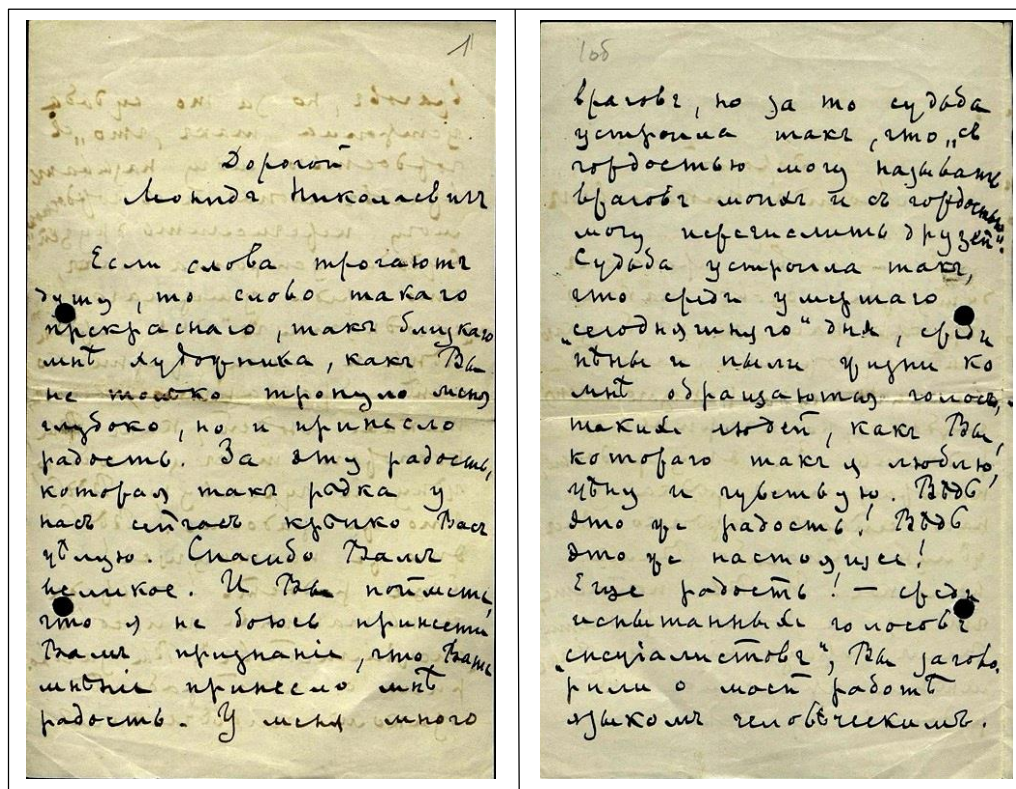 1
Дорогой
Леонидъ Николаевичъ
Если слова трогаютъ
душу, то слово такаго
прекраснаго, такъ близкаго
мнѣ художника, какъ Вы
не только тронуло меня
глубоко, но и принесло
радость. За эту радость,
которая такъ рѣдка у
насъ сейчасъ крѣпко Васъ
цѣлую. Спасибо Вамъ
великое. И Вы поймете,
что я не боюсь принести
Вамъ признаніе, что Ваше
мнѣніе принесло мнѣ
радость. У меня много
1об
враговъ, но за то судьба
устроила такъ, что „съ
гордостью могу называть
враговъ моихъ и съ гордостью
могу перечислить друзей“.
Судьба устроила такъ,
что среди умершаго
„сегодняшняго“ дня, среди
пѣны и пыли жизни ко
мнѣ обращаются голоса,
такихъ людей, какъ Вы,
котораго такъ я люблю,
цѣню и чувствую. Вѣдь
это же радость! Вѣдь
это же настоящее!
Еще радость! — среди
испытанныхъ голосовъ
„спеціалистовъ“, Вы загово-
рили о моей работѣ
языкомъ человѣческимъ.